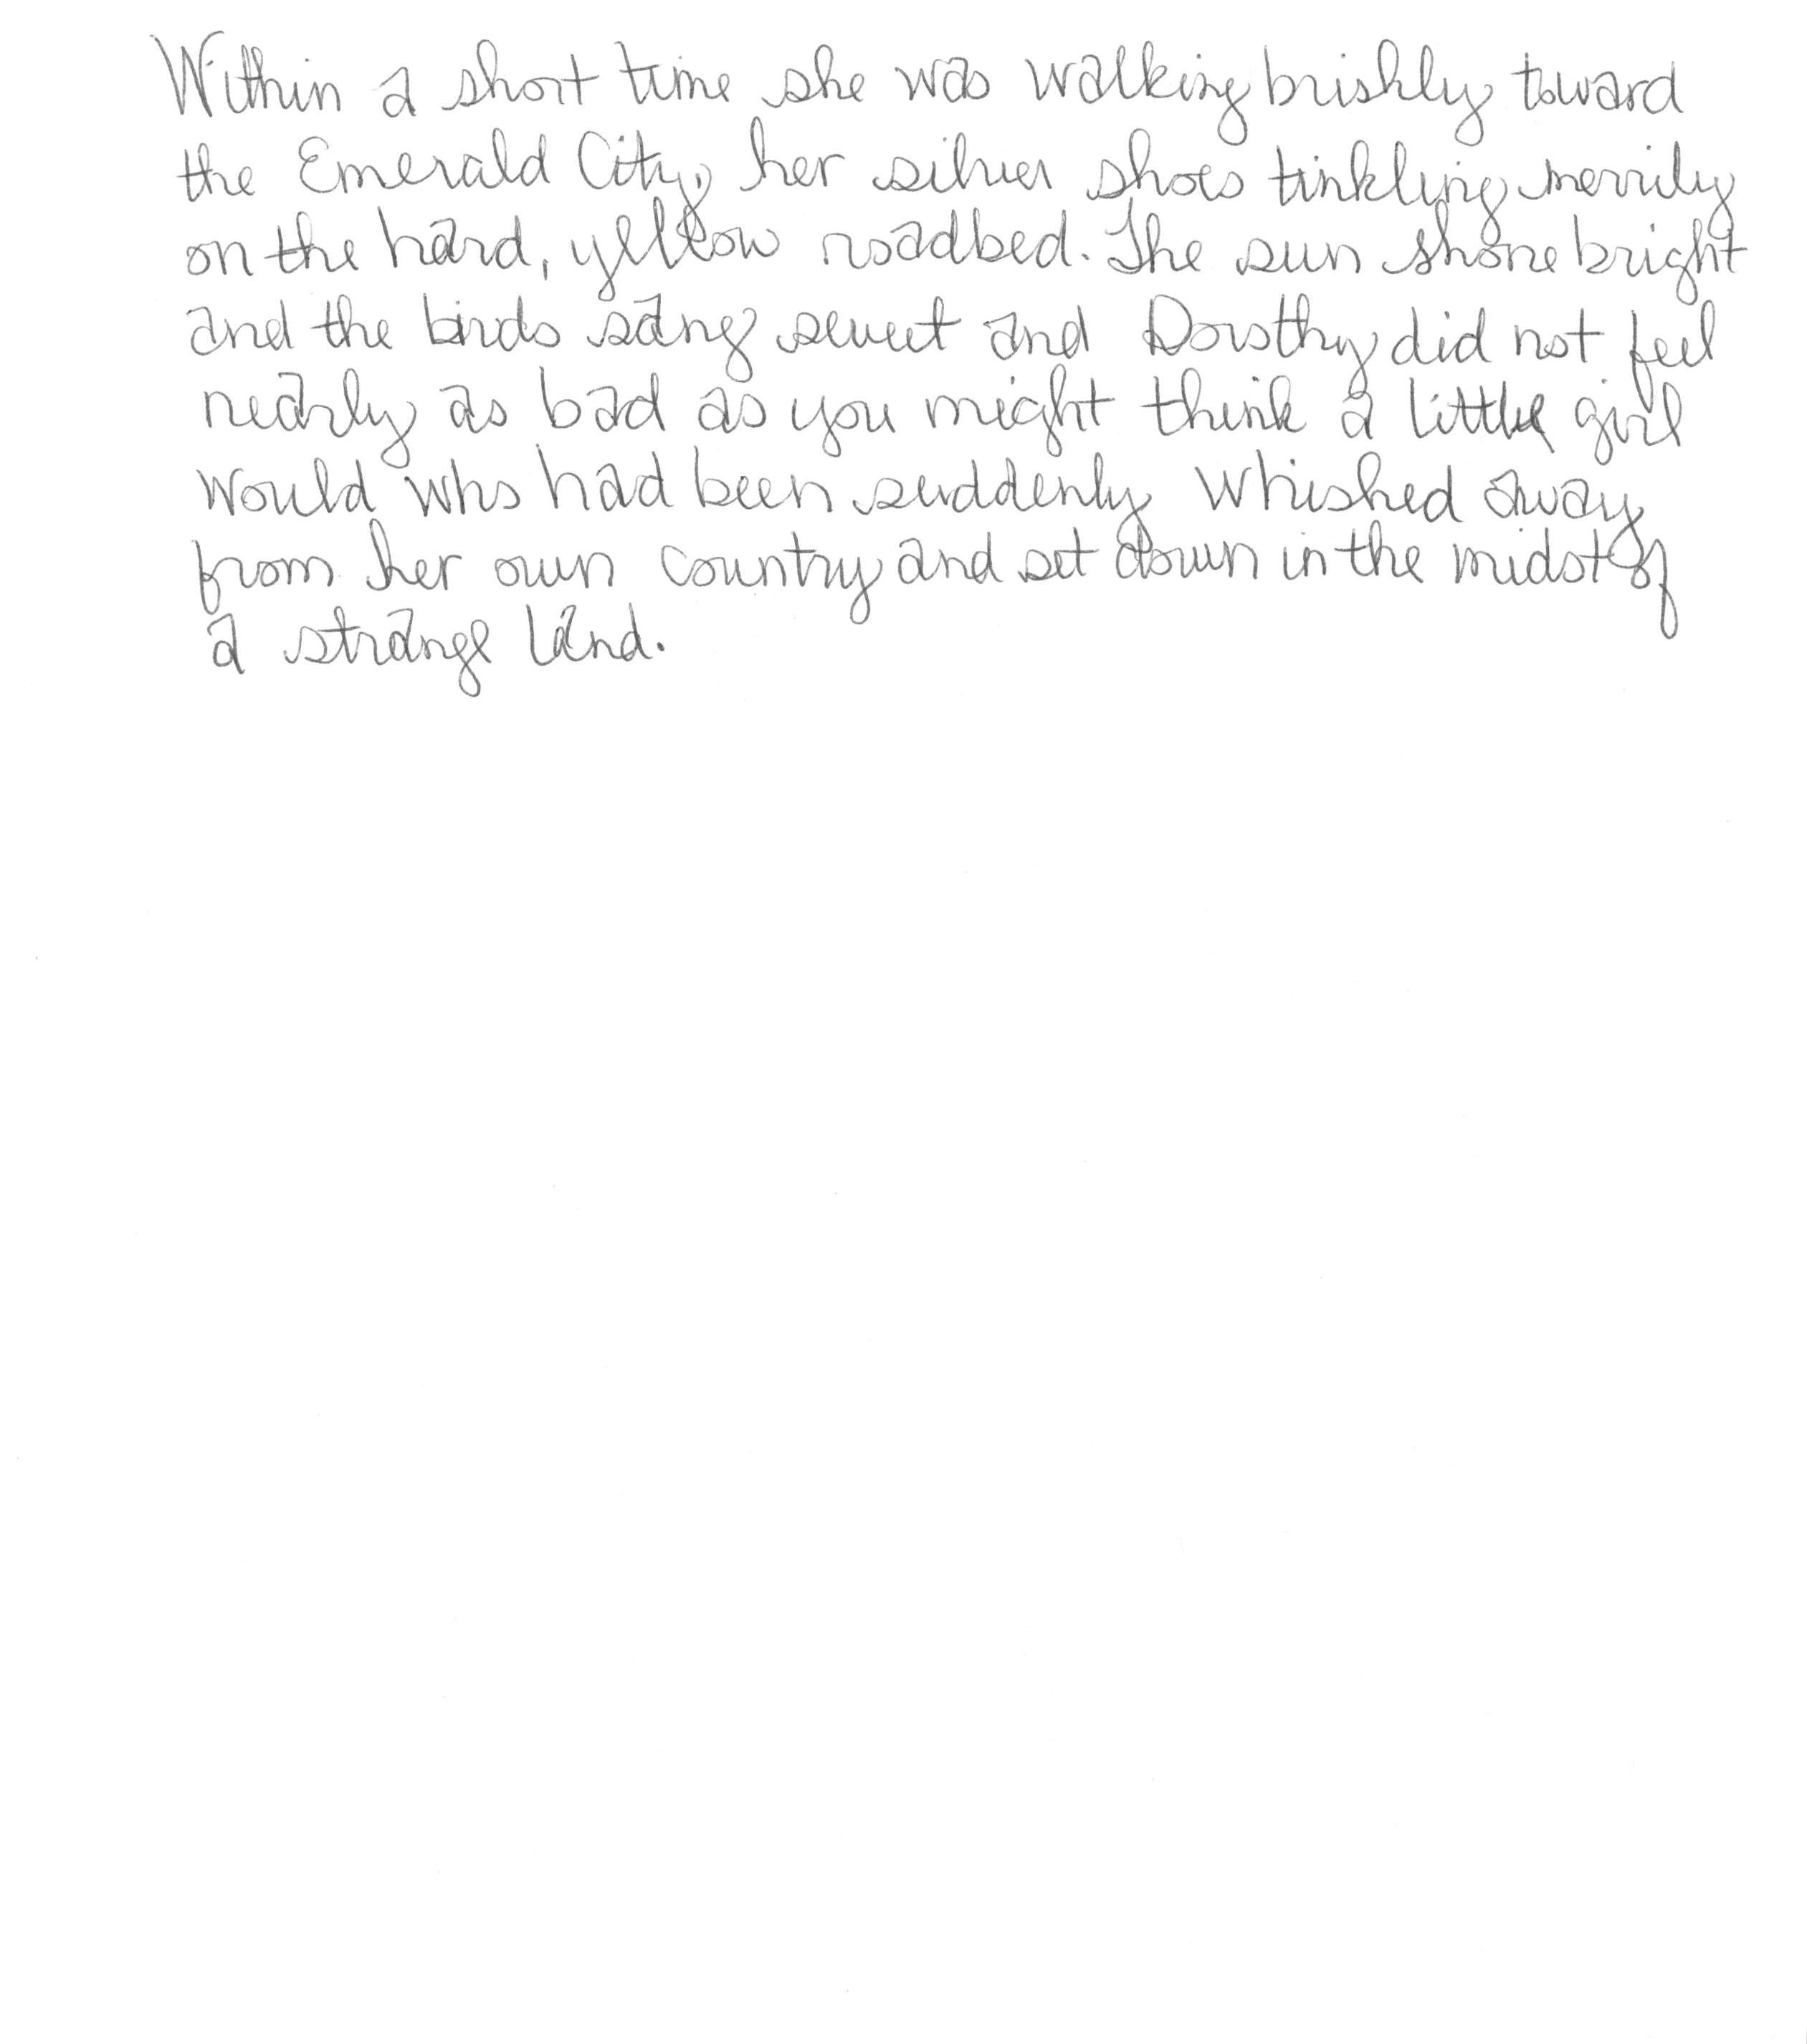 Within a short time she was walking briskly toward
the Emerald City, her silver shoes tinkling merrily
on the hard, yellow roadbed. The sun shone bright
and the birds sang sweet and Dorothy did not feel
nearly as bad as you might think a little girl
would who had been suddenly whished away
from her own country and set down in the midst of
a strange land.